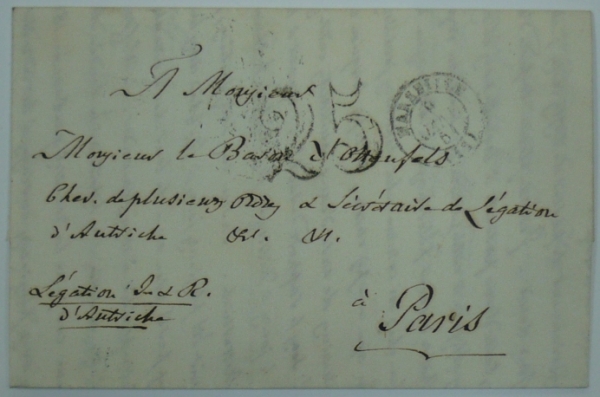 A Monsieur
Monsieur le Baron d'Ottenfels
Chev. de plusieurs Ordres & Sécrétaire de Légation
d'Autriche &c. &c.
Légation I. & R.
d'Autriche
à
Paris
25
MARSEILLE
6
51